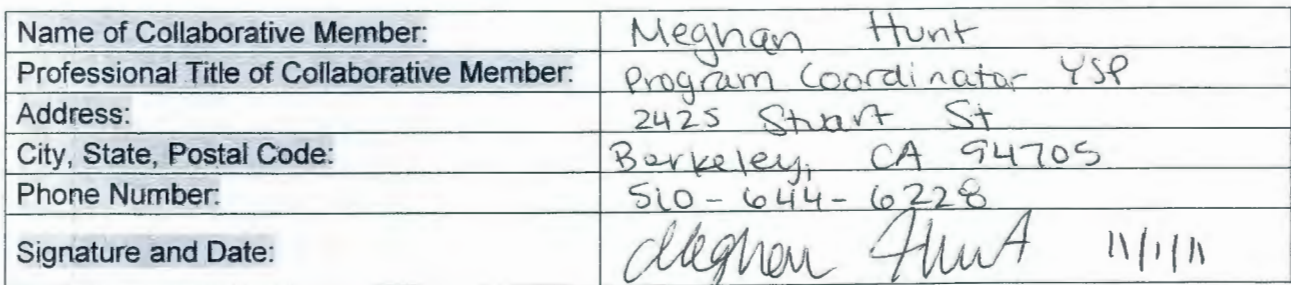 Name of Collaborative Member: Meghan Hunt
Professional Title of Collaborative Member: Program Coordinator YSP
Address: 2425 Stuart St
City, State, Postal Code: Berkeley, CA 94705
Phone Number: 510-644-6228
Signature and Date: Meghan Hunt 11/1/11